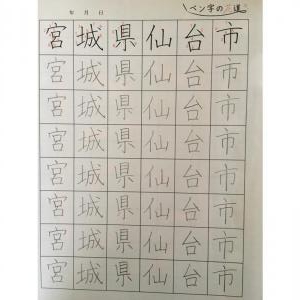 年 月 日
ペン字の 道
宮城県仙台市
宮城県仙台市
宮城県仙台市
宮城県仙台市
宮城県仙台市
宮城県仙台市
宮城県仙台市
宮城県仙台市